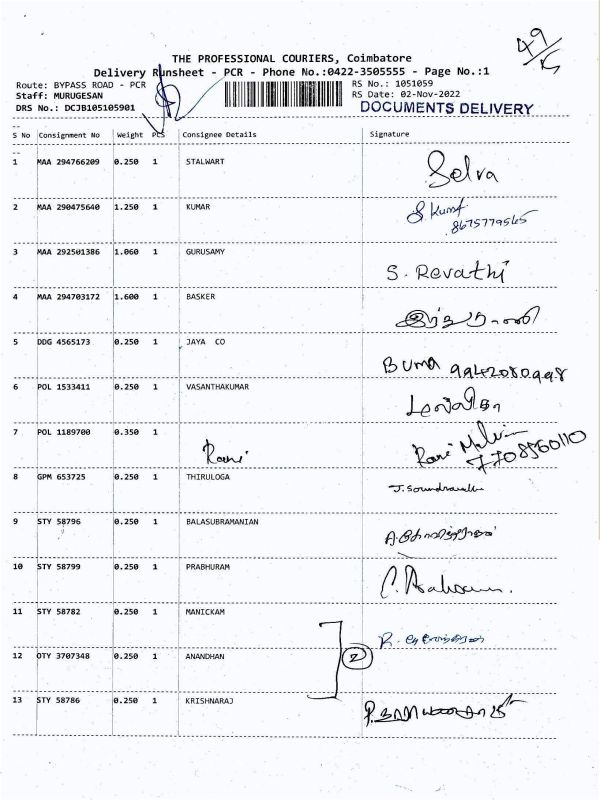 49/5
THE PROFESSIONAL COURIERS, Coimbatore
Delivery Runsheet - PCR - Phone No.:0422-3505555 - Page No.:1
Route: BYPASS ROAD - PCR RS No.: 1051059
Staff: MURUGESAN RS Date: 02-Nov-2022
DRS No.: DCJB105105901 DOCUMENTS DELIVERY
S No Consignment No Weight PCS Consignee Details Signature
1 MAA 294766209 0.250 1 STALWART Selva
2 MAA 290475640 1.250 1 KUMAR S. Kumf
8675779565
3 MAA 292501386 1.060 1 GURUSAMY S. Revathi
4 MAA 294703172 1.600 1 BASKER
5 DDG 4565173 0.250 1 JAYA CO BUMA 9942080998
6 POL 1533411 0.250 1 VASANTHAKUMAR
7 POL 1189700 0.350 1 Rani Rani
7708560110
8 GPM 653725 0.250 1 THIRULOGA
9 STY 58796 0.250 1 BALASUBRAMANIAN
10 STY 58799 0.250 1 PRABHURAM
11 STY 58782 0.250 1 MANICKAM
12 OTY 3707348 0.250 1 ANANDHAN 2
13 STY 58786 0.250 1 KRISHNARAJ